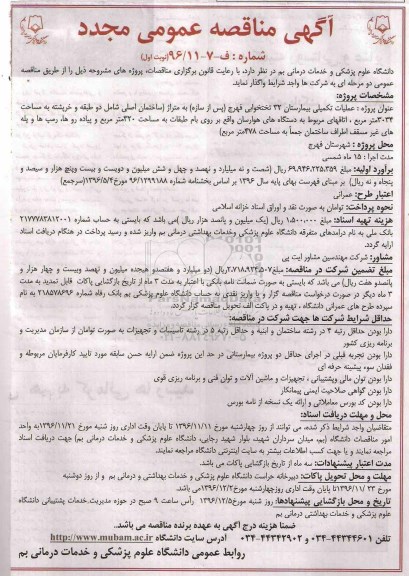 آگهی مناقصه عمومی مجدد
شماره: ف-۷-۹۶/۱۱ (نوبت اول)
دانشگاه علوم پزشکی و خدمات درمانی بم در نظر دارد، با رعایت قانون برگزاری مناقصات، پروژه های مشروحه ذیل را از طریق مناقصه
عمومی دو مرحله ای به شرکت ها واجد شرایط واگذار نماید.
مشخصات پروژه:
عنوان پروژه: عملیات تکمیلی بیمارستان ۳۲ تختخوابی فهرج (پس از سازه) به متراژ (ساختمان اصلی شامل دو طبقه و خرپشته به مساحت
۳۰۳۴ متر مربع، اتاقهای مربوط به دستگاه های هوارسان واقع بر روی بام طبقات به مساحت ۳۲۰ متر مربع و پیاده رو ها، رمپ ها و پله
های غیر مسقف اطراف ساختمان جمعاً به مساحت ۴۷۸ متر مربع)
محل پروژه: شهرستان فهرج
مدت اجرا: ۱۵ ماه شمسی
برآورد اولیه: مبلغ ۶۹،۹۴۶،۲۲۵،۳۵۹ ریال (شصت و نه میلیارد و نهصد و چهل و شش میلیون و دویست و بیست وپنج هزار و سیصد و
پنجاه و نه ریال) بر مبنای فهرست بهای پایه سال ۱۳۹۶ بر اساس بخشنامه شماره ۹۶/۱۲۹۹۱۸۸ مورخ ۱۳۹۶/۵/۴ (سرجمع)
اعتبار طرح: عمرانی
نحوه پرداخت: توامان به صورت نقد و اوراق اسناد خزانه اسلامی
هزینه تهیه اسناد: مبلغ ۱،۵۰۰،۰۰۰ ریال (یک میلیون و پانصد هزار ریال) می باشد که بایستی به حساب شماره ۲۱۷۷۷۸۳۸۱۲۰۰۱
بانک ملی به نام درآمدهای متفرقه دانشگاه علوم پزشکی وخدمات بهداشتی درمانی بم واریز شده و رسید پرداخت در هنگام دریافت اسناد
ارایه گردد.
مشاور: شرکت مهندسین مشاور ایت پی
مبلغ تضمین شرکت در مناقصه: مبلغ ۲،۷۱۸،۹۲۴،۵۰۷ ریال (دو میلیارد و هفتصدو هیجده میلیون و نهصد وبیست و چهار هزار و
پانصدو هفت ریال) می باشد که بایستی به صورت ضمانت نامه بانکی با اعتبار به مدت ۳ ماه از تاریخ بازگشایی پاکات قابل تمدید به مدت
۳ ماه دیگر در صورت درخواست مناقصه گزار و یا واریز نقدی به حساب دانشگاه علوم پزشکی بم بانک رفاه شماره ۲۱۸۵۷۸۶۹۶ به نام
سپرده طرح های عمرانی دانشگاه، تهیه و در پاکت الف تحویل مناقصه گزار گردد.
حداقل شرایط شرکت ها جهت شرکت در مناقصه:
دارا بودن حداقل رتبه ۴ در رشته ساختمان و ابنیه و حداقل رتبه ۵ در رشته تاسیسات و تجهیزات به صورت توامان از سازمان مدیریت و
برنامه ریزی کشور
دارا بودن تجربه قبلی در اجرای حداقل دو پروژه بیمارستانی در حد این پروژه ضمن ارایه حسن سابقه مورد تایید کارفرمایان مربوطه و
فقدان سوء پیشینه حرفه ای
دارا بودن توان مالی وپشتیبانی، تجهیزات و ماشین آلات و توان فنی و برنامه ریزی قوی
دارا بودن گواهی صلاحیت ایمنی پیمانکار
دارا بودن کد بورس معاملاتی و ارائه یک نسخه از نامه بورس
محل و مهلت دریافت اسناد:
متقاضیان واجد شرایط ذکر شده، می توانند از روز چهارشنبه مورخ ۱۳۹۶/۱۱/۱۱ تا پایان وقت اداری روز شنبه مورخ ۱۳۹۶/۱۱/۲۱ به واحد
امور مناقصات دانشگاه (بم، میدان سرداران شهید، بلوار شهید رجایی، دانشگاه علوم پزشکی و خدمات درمانی بم) جهت دریافت اسناد
مراجعه نمایند و یا جهت کسب اطلاعات بیشتر به سایت اینترنتی دانشگاه مراجعه نمایند.
مدت اعتبار پیشنهادات: سه ماه از تاریخ بازگشایی پاکات می باشد.
مهلت و محل تحویل پاکات: دبیرخانه حراست دانشگاه علوم پزشکی و خدمات بهداشتی و درمانی بم و از روز دوشنبه
مورخ ۱۳۹۶/۱۱/۲۳ تا پایان وقت اداری روز چهارشنبه مورخ ۱۳۹۶/۱۲/۲ می باشد.
تاریخ و محل بازگشایی پیشنهادها: روز شنبه مورخ ۱۳۹۶/۱۲/۵ رأس ساعت ۹ صبح در حوزه مدیریت.خدمات پشتیبانی دانشگاه
علوم پزشکی و خدمات بهداشتی درمانی بم
ضمنا هزینه درج آگهی به عهده برنده مناقصه می باشد.
تلفن ۴۴۳۴۴۶۰۱-۰۳۴ و ۴۴۳۴۲۹۰۲-۰۳۴ آدرس سایت دانشگاه http://www.mubam.ac.ir
روابط عمومی دانشگاه علوم پزشکی و خدمات درمانی بم